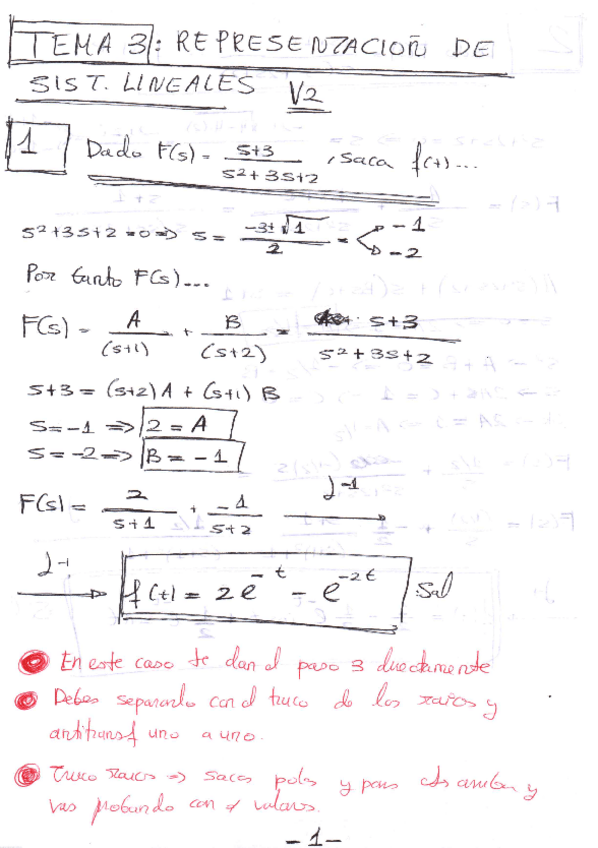 TEMA 3: REPRESENTACIOÑ DE
SIST. LINEALES V2
1 Dado F(s) = (s+3)/(s²+3s+2), saca f(t)...
s²+3s+2=0 => s = (-3±√1)/2 = -1 -2
Por tanto F(s)...
F(s) = A/(s+1) + B/(s+2) = s+3/(s²+3s+2)
s+3 = (s+2)A + (s+1)B
s=-1 => 2 = A
s=-2 => B = -1
F(s) = 2/(s+1) + -1/(s+2) L⁻¹ →
L⁻¹ → f(t) = 2e^-t - e^-2t Sol
En este caso te dan el paso 3 directamente
Debes separarlo con el truco de las raices y
antitransf uno a uno.
Truco raices => sacas polos y pones cts arriba y
vas probando con valores.
-1-